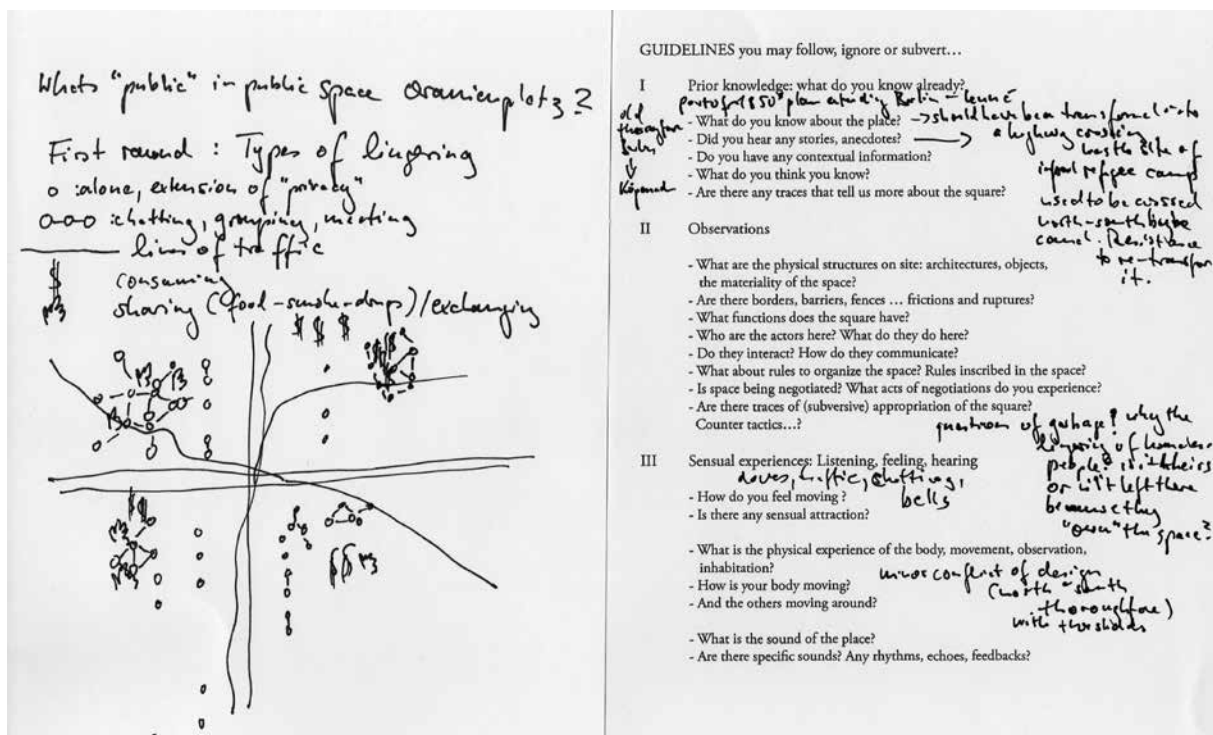 Whats "public" in public space Oranienplatz?
First round : Types of lingering
o :alone, extension of "privacy"
o-o-o :chatting, grouping, meeting
lines of traffic
$ consuming
sharing (food-smoke-drugs)/exchanging
$ $ $
$$
GUIDELINES you may follow, ignore or subvert…
I Prior knowledge: what do you know already?
part of 1850s plan extending Berlin - Lenné
- What do you know about the place? → should have been transformed into
- Did you hear any stories, anecdotes? → a highway crossing
- Do you have any contextual information?
was the site of
- What do you think you know?
refugee camp
- Are there any traces that tell us more about the square?
used to be crossed
north-south by the
canal. Resistance
to re-transform
it.
old
thoroughfare
↓
II Observations
- What are the physical structures on site: architectures, objects,
the materiality of the space?
- Are there borders, barriers, fences … frictions and ruptures?
- What functions does the square have?
- Who are the actors here? What do they do here?
- Do they interact? How do they communicate?
- What about rules to organize the space? Rules inscribed in the space?
- Is space being negotiated? What acts of negotiations do you experience?
- Are there traces of (subversive) appropriation of the square?
Counter tactics…?
question of garbage? why the
lingering of homeless
people? is it theirs
or is it left there
because they
"own" the space?
III Sensual experiences: Listening, feeling, hearing
doves, traffic, chatting,
bells
- How do you feel moving ?
- Is there any sensual attraction?
- What is the physical experience of the body, movement, observation,
inhabitation?
minor conflict of design
(north-south
thoroughfare)
with thresholds
- How is your body moving?
- And the others moving around?
- What is the sound of the place?
- Are there specific sounds? Any rhythms, echoes, feedbacks?